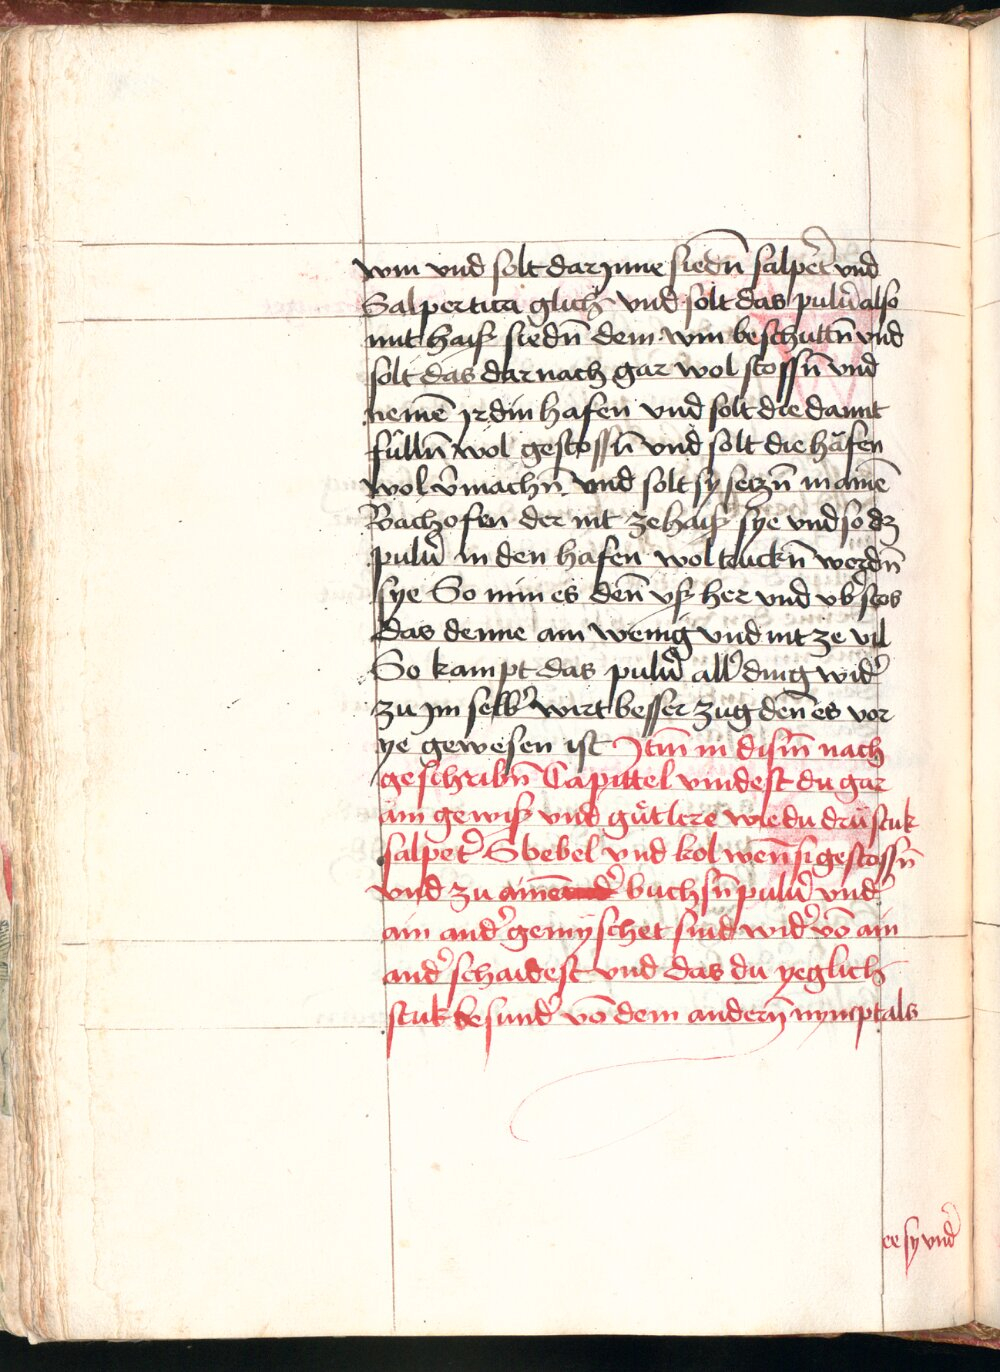 win vnd solt dar jnne siedn̄ salpet̾ vnd
Salpertica glich vnd solt das pulu̾ also
mit haiß siedn̄ dem win beschuttn̄ vnd
solt das dar nach gar wol stossn̄ vnd
nemē jrdin hafen vnd solt die damit
fúlln̄ wol gestossn̄ vnd solt die háfen
wol v̾machn̄ vnd solt sy setzn̄ in ainē
Bachofen der nit ze haiß sye vnd so dz
pulu̾ in den hafen wol truckn̄ werdn̄
sye So nim es den̄ vß her vnd vb̾ stos
das denne ain wenig vnd nit ze vil
So kampt das pulu̾ all̾ ding wid̾
zu jm selb̾ wirt besser zug den̄ es vor
ye gewesen ist Jtm̄ in dism̄ nach
geschribn̄ Capittel vindest du gar
ain gewiß vnd gůt lere wie du drú stuk
salpet̾ Swebel vnd kol wen̄ si gestossn̄
vnd zu ainē buchsn̄ pulu̾ vnd̾
ain and̾ gemyschet sind wid̾ vō ain
and̾ schaidest vnd das du yeglich
stuk besund̾ vō dem andern̄ nympt als
ee sy vnd̾